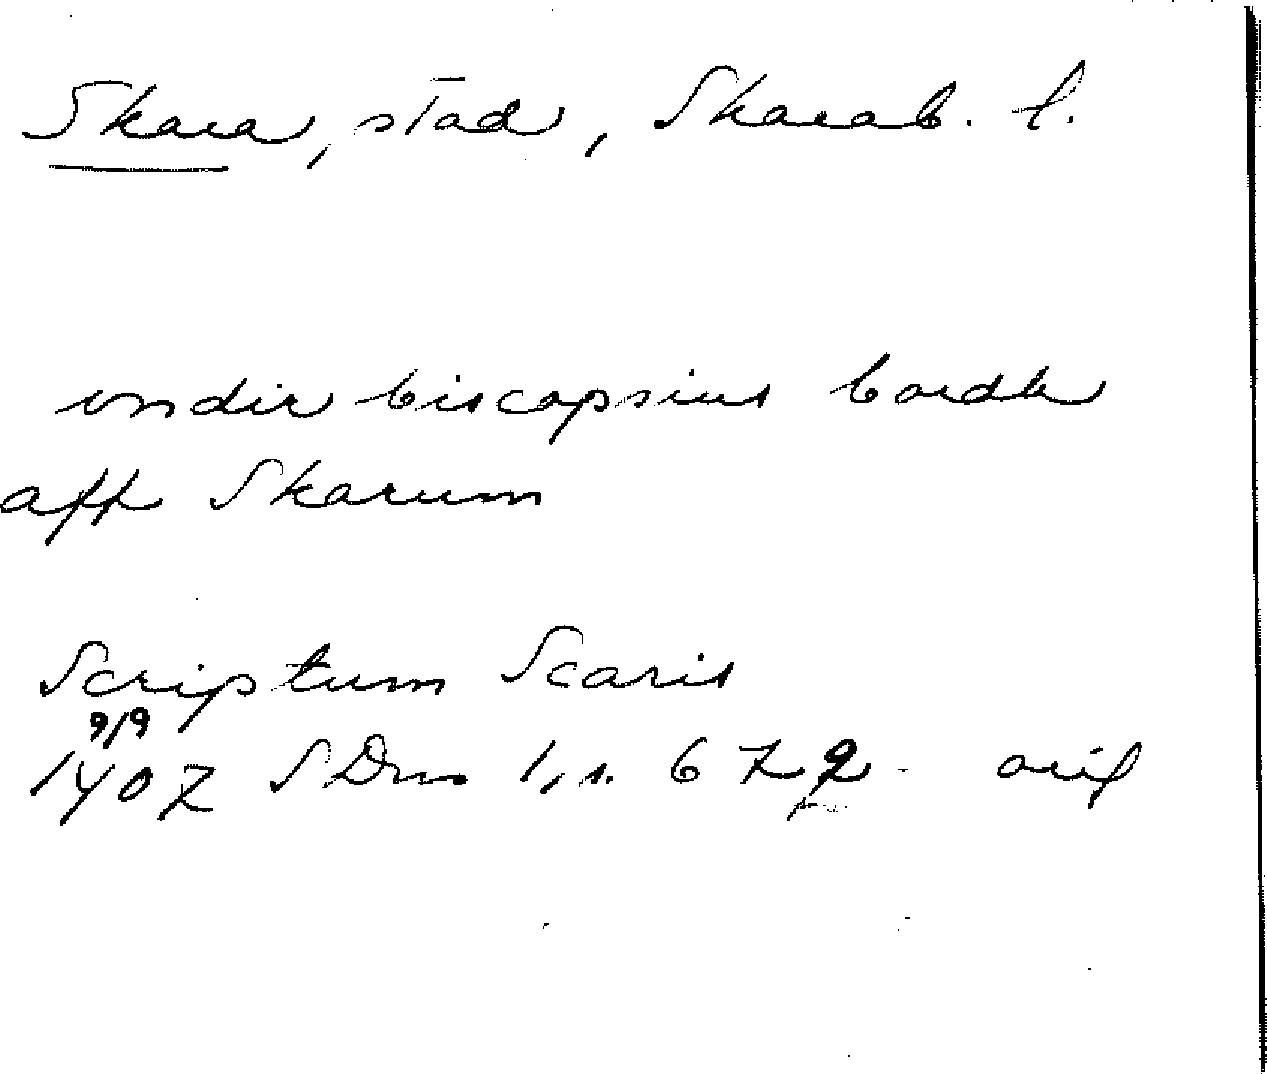 Skara, stad, Skarab. l.
vndir biscopsins bordh
aff Skarum
Scriptum Scaris
9/9
1407 SDns 1, s. 672. orig